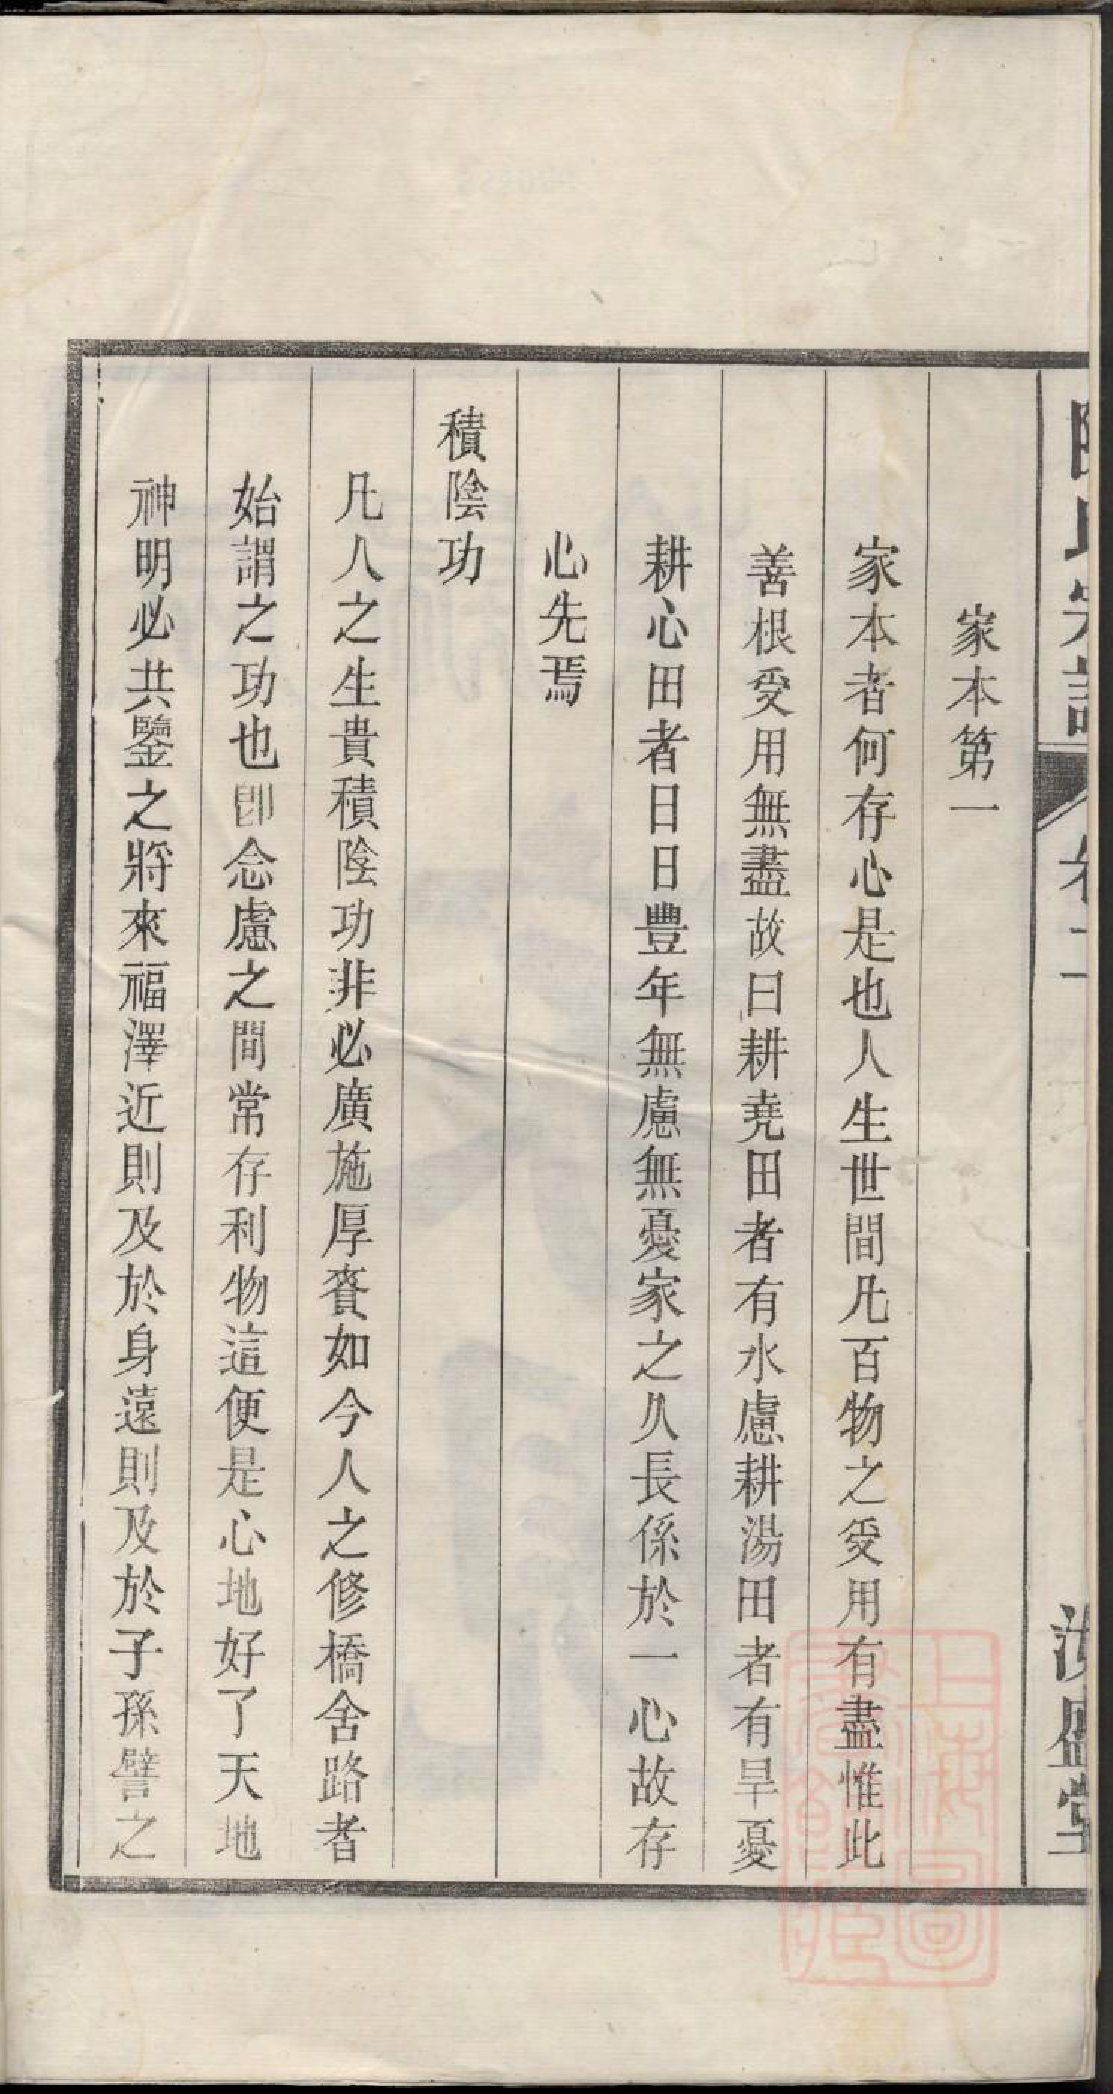 氏宗譜 卷二 盛堂
家本第一
家本者何存心是也人生世間凡百物之受用有盡惟此
善根受用無盡故曰耕堯田者有水慮耕湯田者有旱憂
耕心田者日日豐年無慮無憂家之久長係於一心故存
心先焉
積陰功
凡人之生貴積陰功非必廣施厚賚如今人之修橋舍路者
始謂之功也卽念慮之間常存利物這便是心地好了天地
神明必共鑒之將來福澤近則及於身遠則及於子孫譬之